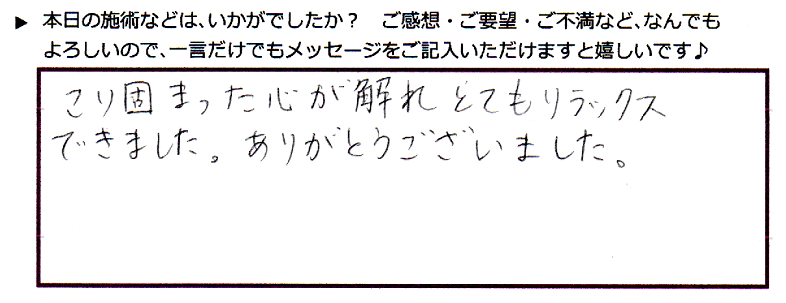 ▶ 本日の施術などは、いかがでしたか？　ご感想・ご要望・ご不満など、なんでも
よろしいので、一言だけでもメッセージをご記入いただけますと嬉しいです♪
こり固まった心が解れとてもリラックス
できました。ありがとうございました。